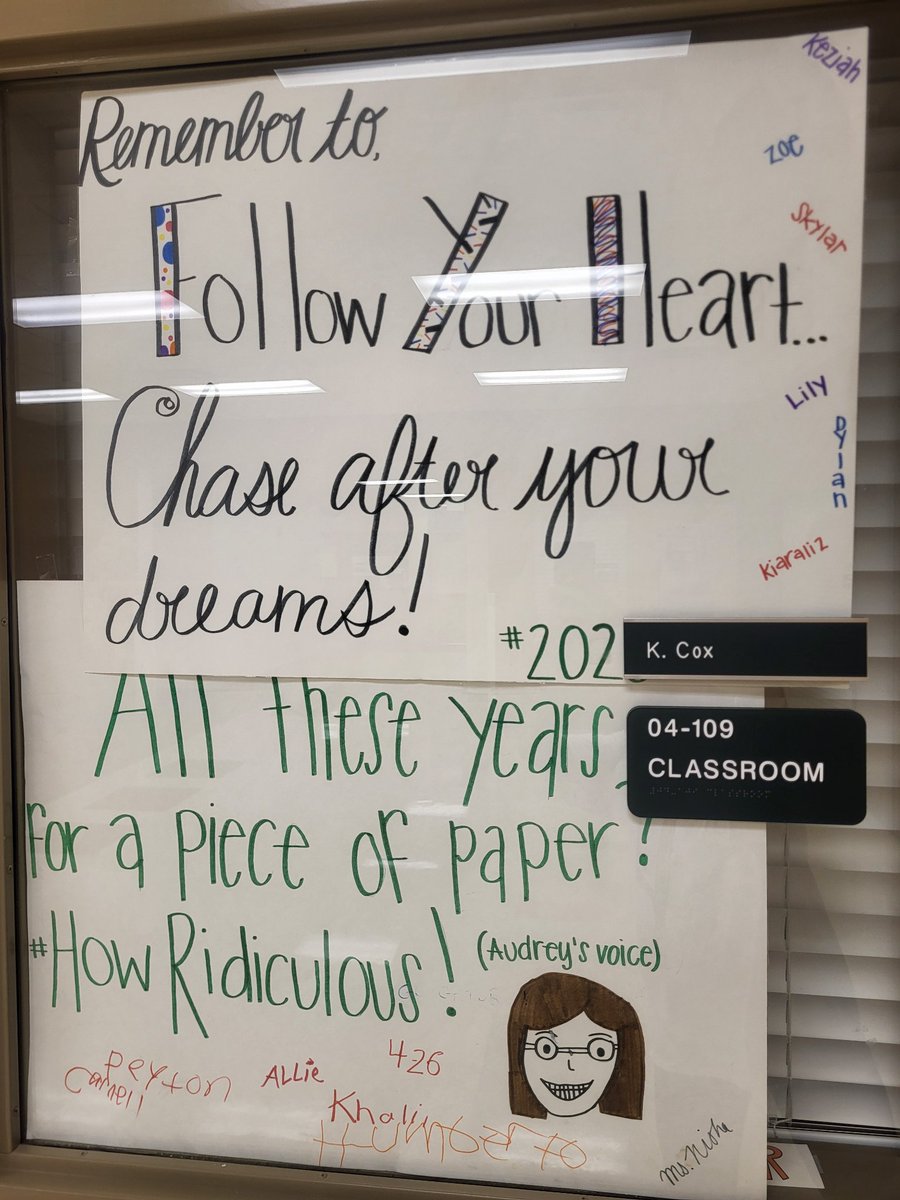 Remember to,
Follow Your Heart...
Chase after your
dreams!
Keziah
Zoe
Skylar
Lily
Dylan
Kiaraliz
#202
K. Cox
04-109
CLASSROOM
All these years,
for a piece of paper?
#How Ridiculous!
(Audrey's voice)
Peyton
Allie
426
Khalin
Ms. Nisha